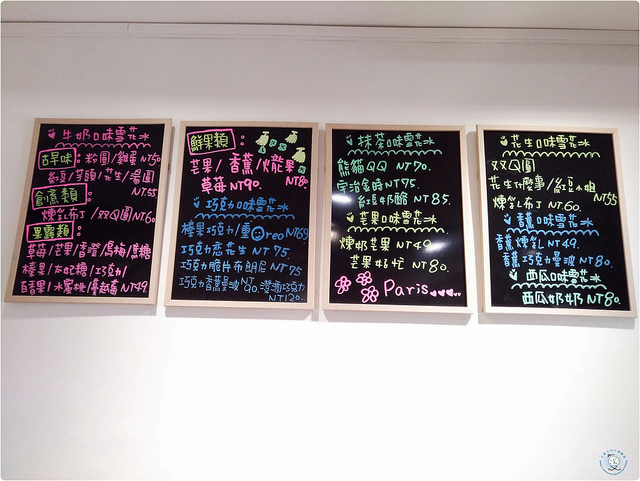 牛奶口味雪花冰
古早味:粉圓/雞蛋NT50
紅豆/芋頭/花生/湯圓
NT.55
創意類:
煉乳布丁/双Q圓NT60
果露類:
草莓/芒果/香橙/烏梅/焦糖
榛果/太妃糖/巧克力/
百香果/水蜜桃/蔓越莓NT49
鮮果類:
芒果/香蕉/火龍果
NT80
草莓NT90.
巧克力口味雪花冰
榛果巧克力/重Oreo NT69
巧克力恋花生 NT 75
巧克力脆片布朗尼 NT75
巧克力香蕉曼波NT90.澄酒巧克力
NT120.
抹茶口味雪花冰
熊貓QQ NT70.
宇治金時NT75.
紅豆奶酪 NT85.
芒果口味雪花冰
煉奶芒果 NT49
芒果好忙 NT80.
Paris
花生口味雪花冰
双Q圓
花生什麼事/紅豆小姐
NT55
煉乳布丁 NT.60.
香蕉口味雪花冰
香蕉煉乳NT49.
香蕉巧克力曼波NT80.
西瓜口味雪花冰
西瓜奶奶NT80.